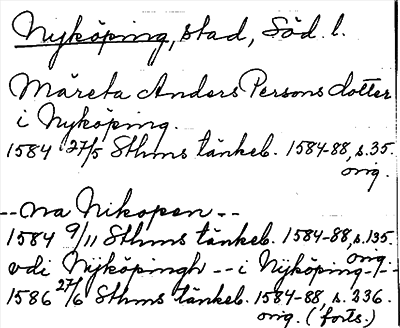 Nyköping, stad, Söd. l.
Märeta Anders Persons dotter
i Nyköping.
1584 27/5 Sthms tänkeb. 1584-88, s. 35.
orig.
-- na Nikopen --
1584 9/11 Sthms tänkeb. 1584-88, s. 135.
orig.
vdi Nyköpingh -- i Nyköping --
1586 27/6 Sthms tänkeb. 1584-88, s. 236.
orig. (forts.)